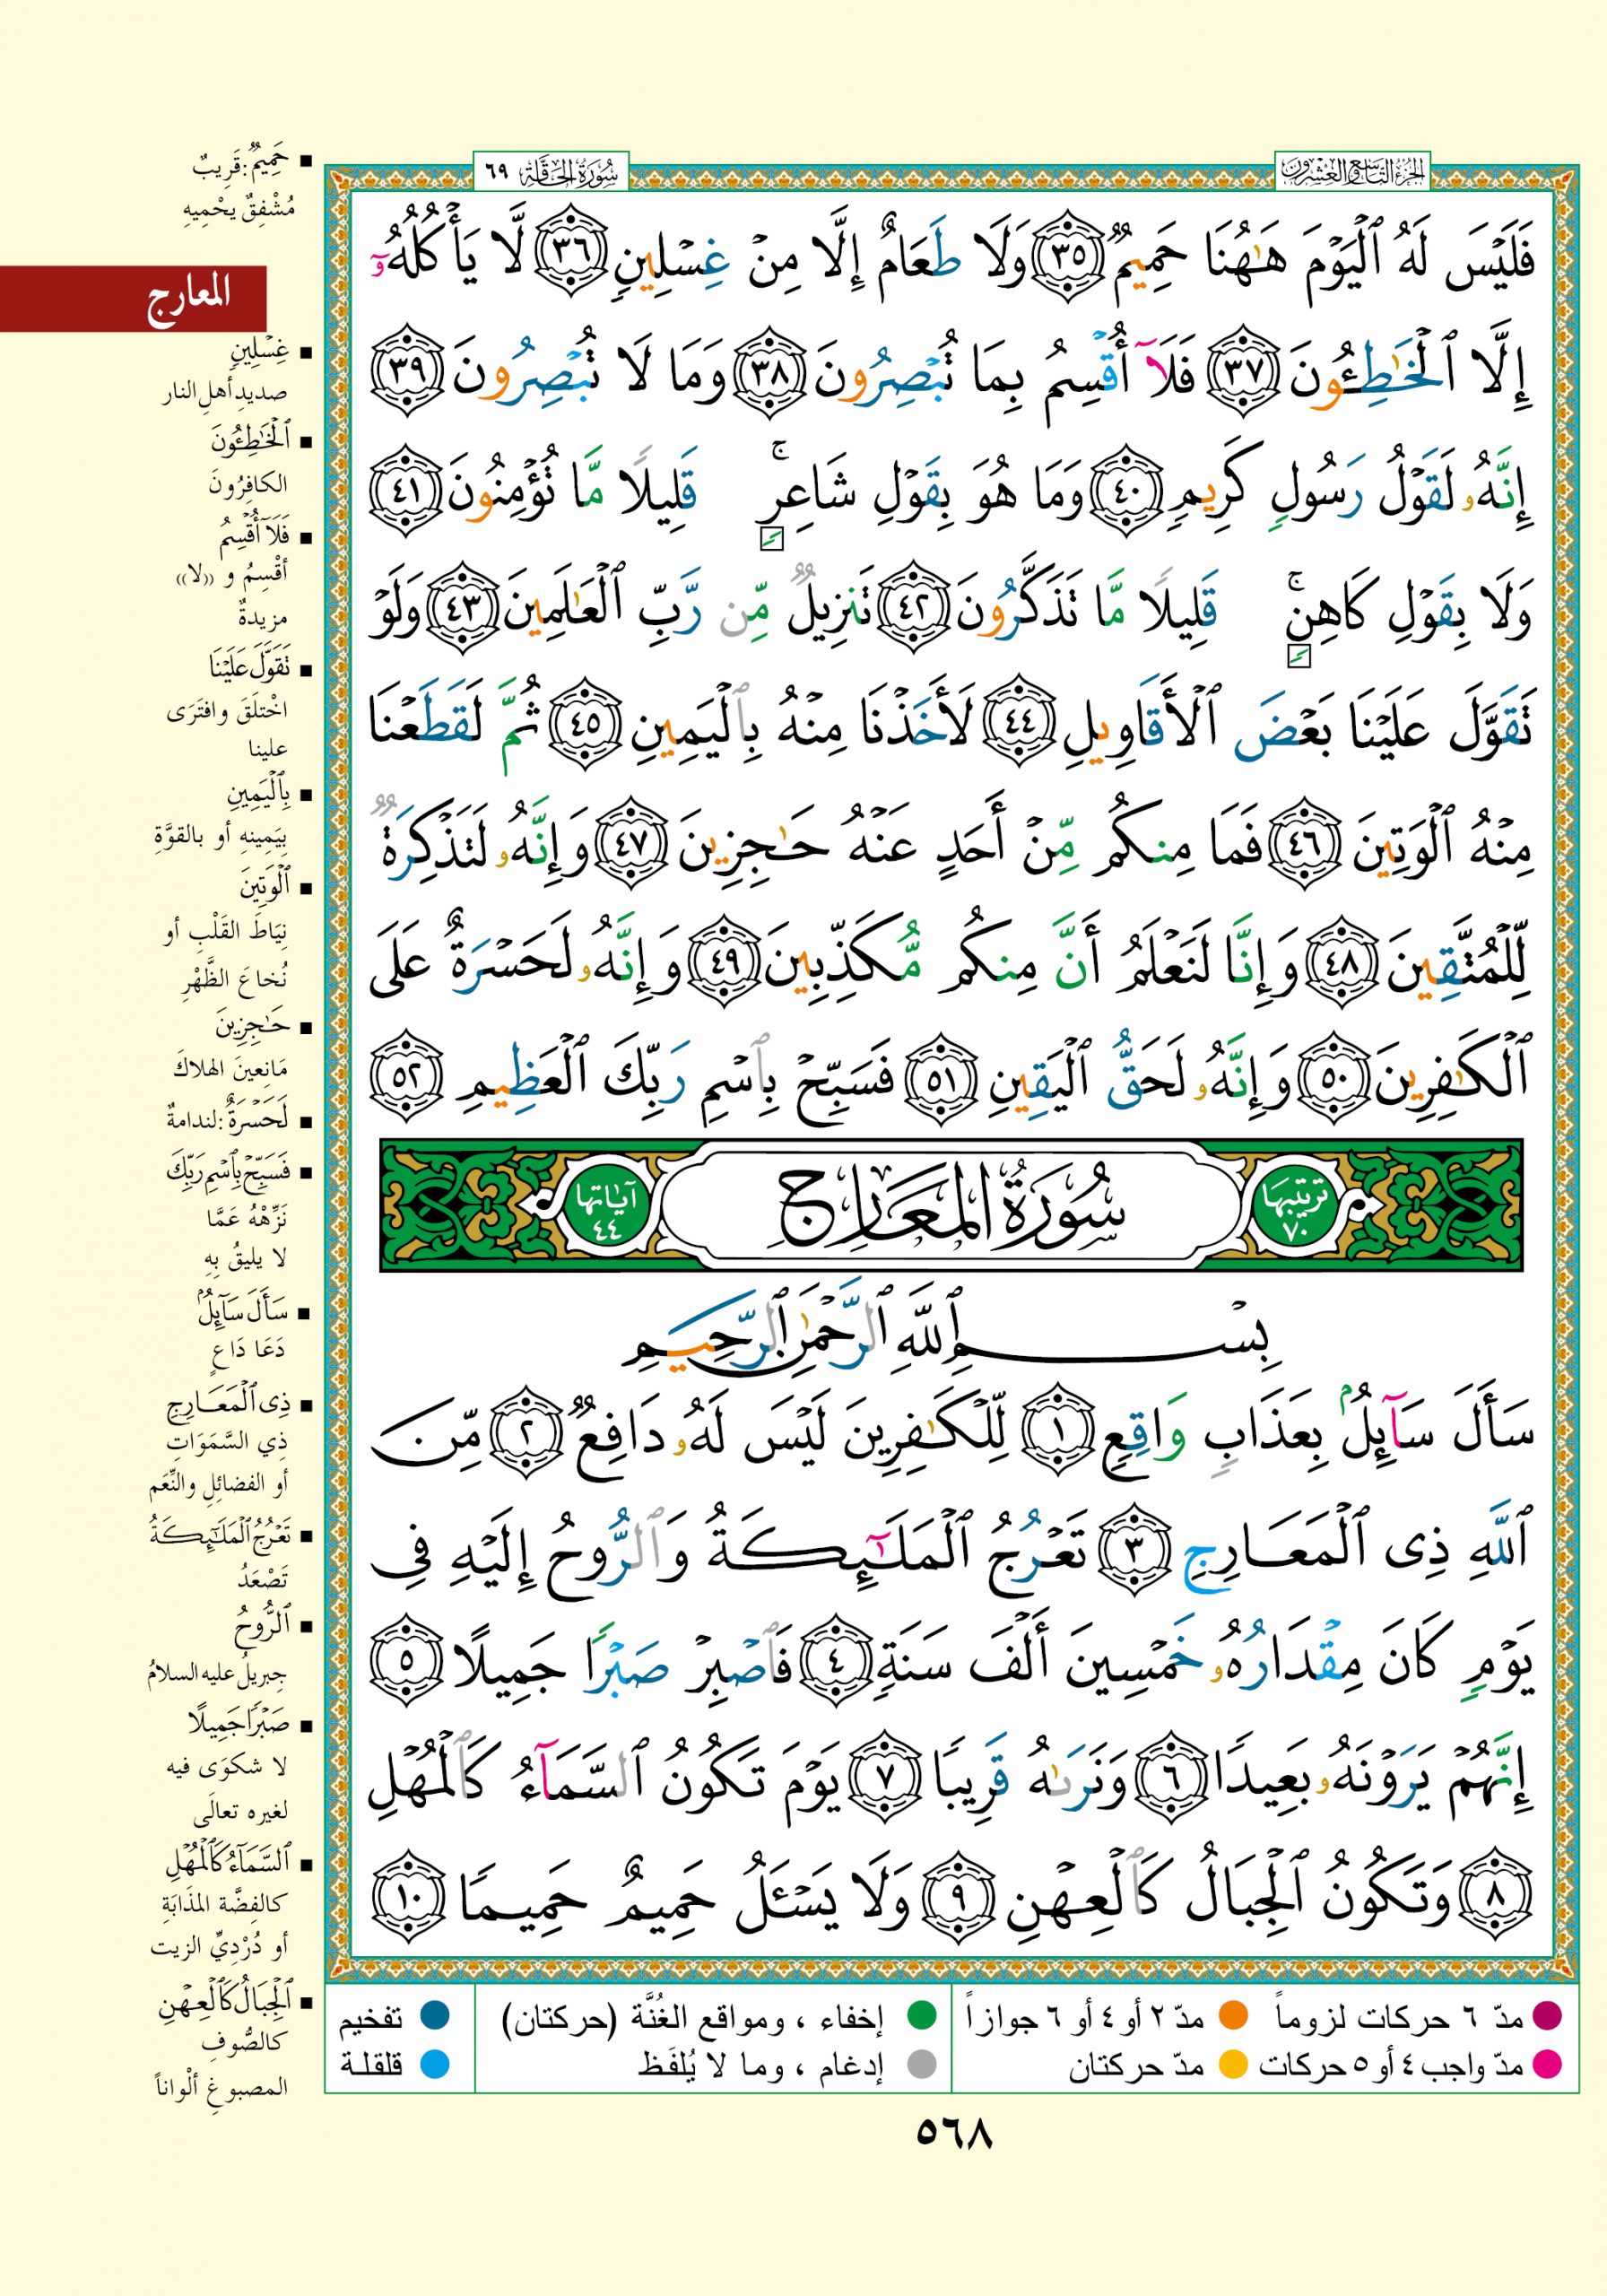 الجزء التاسع والعشرون
سورة الحاقة ٦٩
فَلَيْسَ لَهُ ٱلْيَوْمَ هَٰهُنَا حَمِيمٌ ٣٥ وَلَا طَعَامٌ إِلَّا مِنْ غِسْلِينٍ ٣٦ لَّا يَأْكُلُهُۥٓ
إِلَّا ٱلْخَٰطِـُٔونَ ٣٧ فَلَآ أُقْسِمُ بِمَا تُبْصِرُونَ ٣٨ وَمَا لَا تُبْصِرُونَ ٣٩
إِنَّهُۥ لَقَوْلُ رَسُولٍ كَرِيمٍ ٤٠ وَمَا هُوَ بِقَوْلِ شَاعِرٍ ۚ قَلِيلًا مَّا تُؤْمِنُونَ ٤١
وَلَا بِقَوْلِ كَاهِنٍ ۚ قَلِيلًا مَّا تَذَكَّرُونَ ٤٢ تَنزِيلٌ مِّن رَّبِّ ٱلْعَٰلَمِينَ ٤٣ وَلَوْ
تَقَوَّلَ عَلَيْنَا بَعْضَ ٱلْأَقَاوِيلِ ٤٤ لَأَخَذْنَا مِنْهُ بِٱلْيَمِينِ ٤٥ ثُمَّ لَقَطَعْنَا
مِنْهُ ٱلْوَتِينَ ٤٦ فَمَا مِنكُم مِّنْ أَحَدٍ عَنْهُ حَٰجِزِينَ ٤٧ وَإِنَّهُۥ لَتَذْكِرَةٌ
لِّلْمُتَّقِينَ ٤٨ وَإِنَّا لَنَعْلَمُ أَنَّ مِنكُم مُّكَذِّبِينَ ٤٩ وَإِنَّهُۥ لَحَسْرَةٌ عَلَى
ٱلْكَٰفِرِينَ ٥٠ وَإِنَّهُۥ لَحَقُّ ٱلْيَقِينِ ٥١ فَسَبِّحْ بِٱسْمِ رَبِّكَ ٱلْعَظِيمِ ٥٢
ترتيبها ٧٠ سُورَةُ المَعَارِج آياتها ٤٤
بِسْمِ ٱللَّهِ ٱلرَّحْمَٰنِ ٱلرَّحِيمِ
سَأَلَ سَآئِلٌۢ بِعَذَابٍ وَاقِعٍ ١ لِّلْكَٰفِرِينَ لَيْسَ لَهُۥ دَافِعٌ ٢ مِّنَ
ٱللَّهِ ذِى ٱلْمَعَارِجِ ٣ تَعْرُجُ ٱلْمَلَٰٓئِكَةُ وَٱلرُّوحُ إِلَيْهِ فِى
يَوْمٍ كَانَ مِقْدَارُهُۥ خَمْسِينَ أَلْفَ سَنَةٍ ٤ فَٱصْبِرْ صَبْرًا جَمِيلًا ٥
إِنَّهُمْ يَرَوْنَهُۥ بَعِيدًا ٦ وَنَرَىٰهُ قَرِيبًا ٧ يَوْمَ تَكُونُ ٱلسَّمَآءُ كَٱلْمُهْلِ
٨ وَتَكُونُ ٱلْجِبَالُ كَٱلْعِهْنِ ٩ وَلَا يَسْـَٔلُ حَمِيمٌ حَمِيمًا ١٠
حَمِيمٌ: قَرِيبٌ
مُشْفِقٌ يحْمِيهِ
المعارج
غِسْلِينٍ
صديدِ أهلِ النار
ٱلْخَٰطِـُٔونَ
الكافِرُونَ
فَلَآ أُقْسِمُ
أقْسِمُ و «لا»
مزيدةٌ
تَقَوَّلَ عَلَيْنَا
اخْتَلَقَ وافتَرَى
علينا
بِٱلْيَمِينِ
بِيَمِينِهِ أو بالقوَّةِ
ٱلْوَتِينَ
نِيَاطَ القَلْبِ أو
نُخاعَ الظَّهْرِ
حَٰجِزِينَ
مَانِعينَ الهلاكَ
لَحَسْرَةٌ: لندامةٌ
فَسَبِّحْ بِٱسْمِ رَبِّكَ
نَزِّهْهُ عَمَّا
لا يليقُ بِهِ
سَأَلَ سَآئِلٌۢ
دَعَا دَاعٍ
ذِى ٱلْمَعَارِجِ
ذِي السَّمَوَاتِ
أو الفضائلِ والنِّعَم
تَعْرُجُ ٱلْمَلَٰٓئِكَةُ
تَصْعَدُ
ٱلرُّوحُ
جِبريلُ عليه السلامُ
صَبْرًا جَمِيلًا
لا شكوَى فيه
لغيره تعالَى
ٱلسَّمَآءُ كَٱلْمُهْلِ
كالفِضَّة المذَابَةِ
أو دُرْدِيِّ الزيت
ٱلْجِبَالُ كَٱلْعِهْنِ
كالصُّوفِ
المصبوغِ ألْواناً
مدّ ٦ حركات لزوماً مدّ ٢ أو ٤ أو ٦ جوازاً إخفاء ، ومواقع الغُنَّة (حركتان) تفخيم
مدّ واجب ٤ أو ٥ حركات مدّ حركتان إدغام ، وما لا يُلفَظ قلقلة
٥٦٨